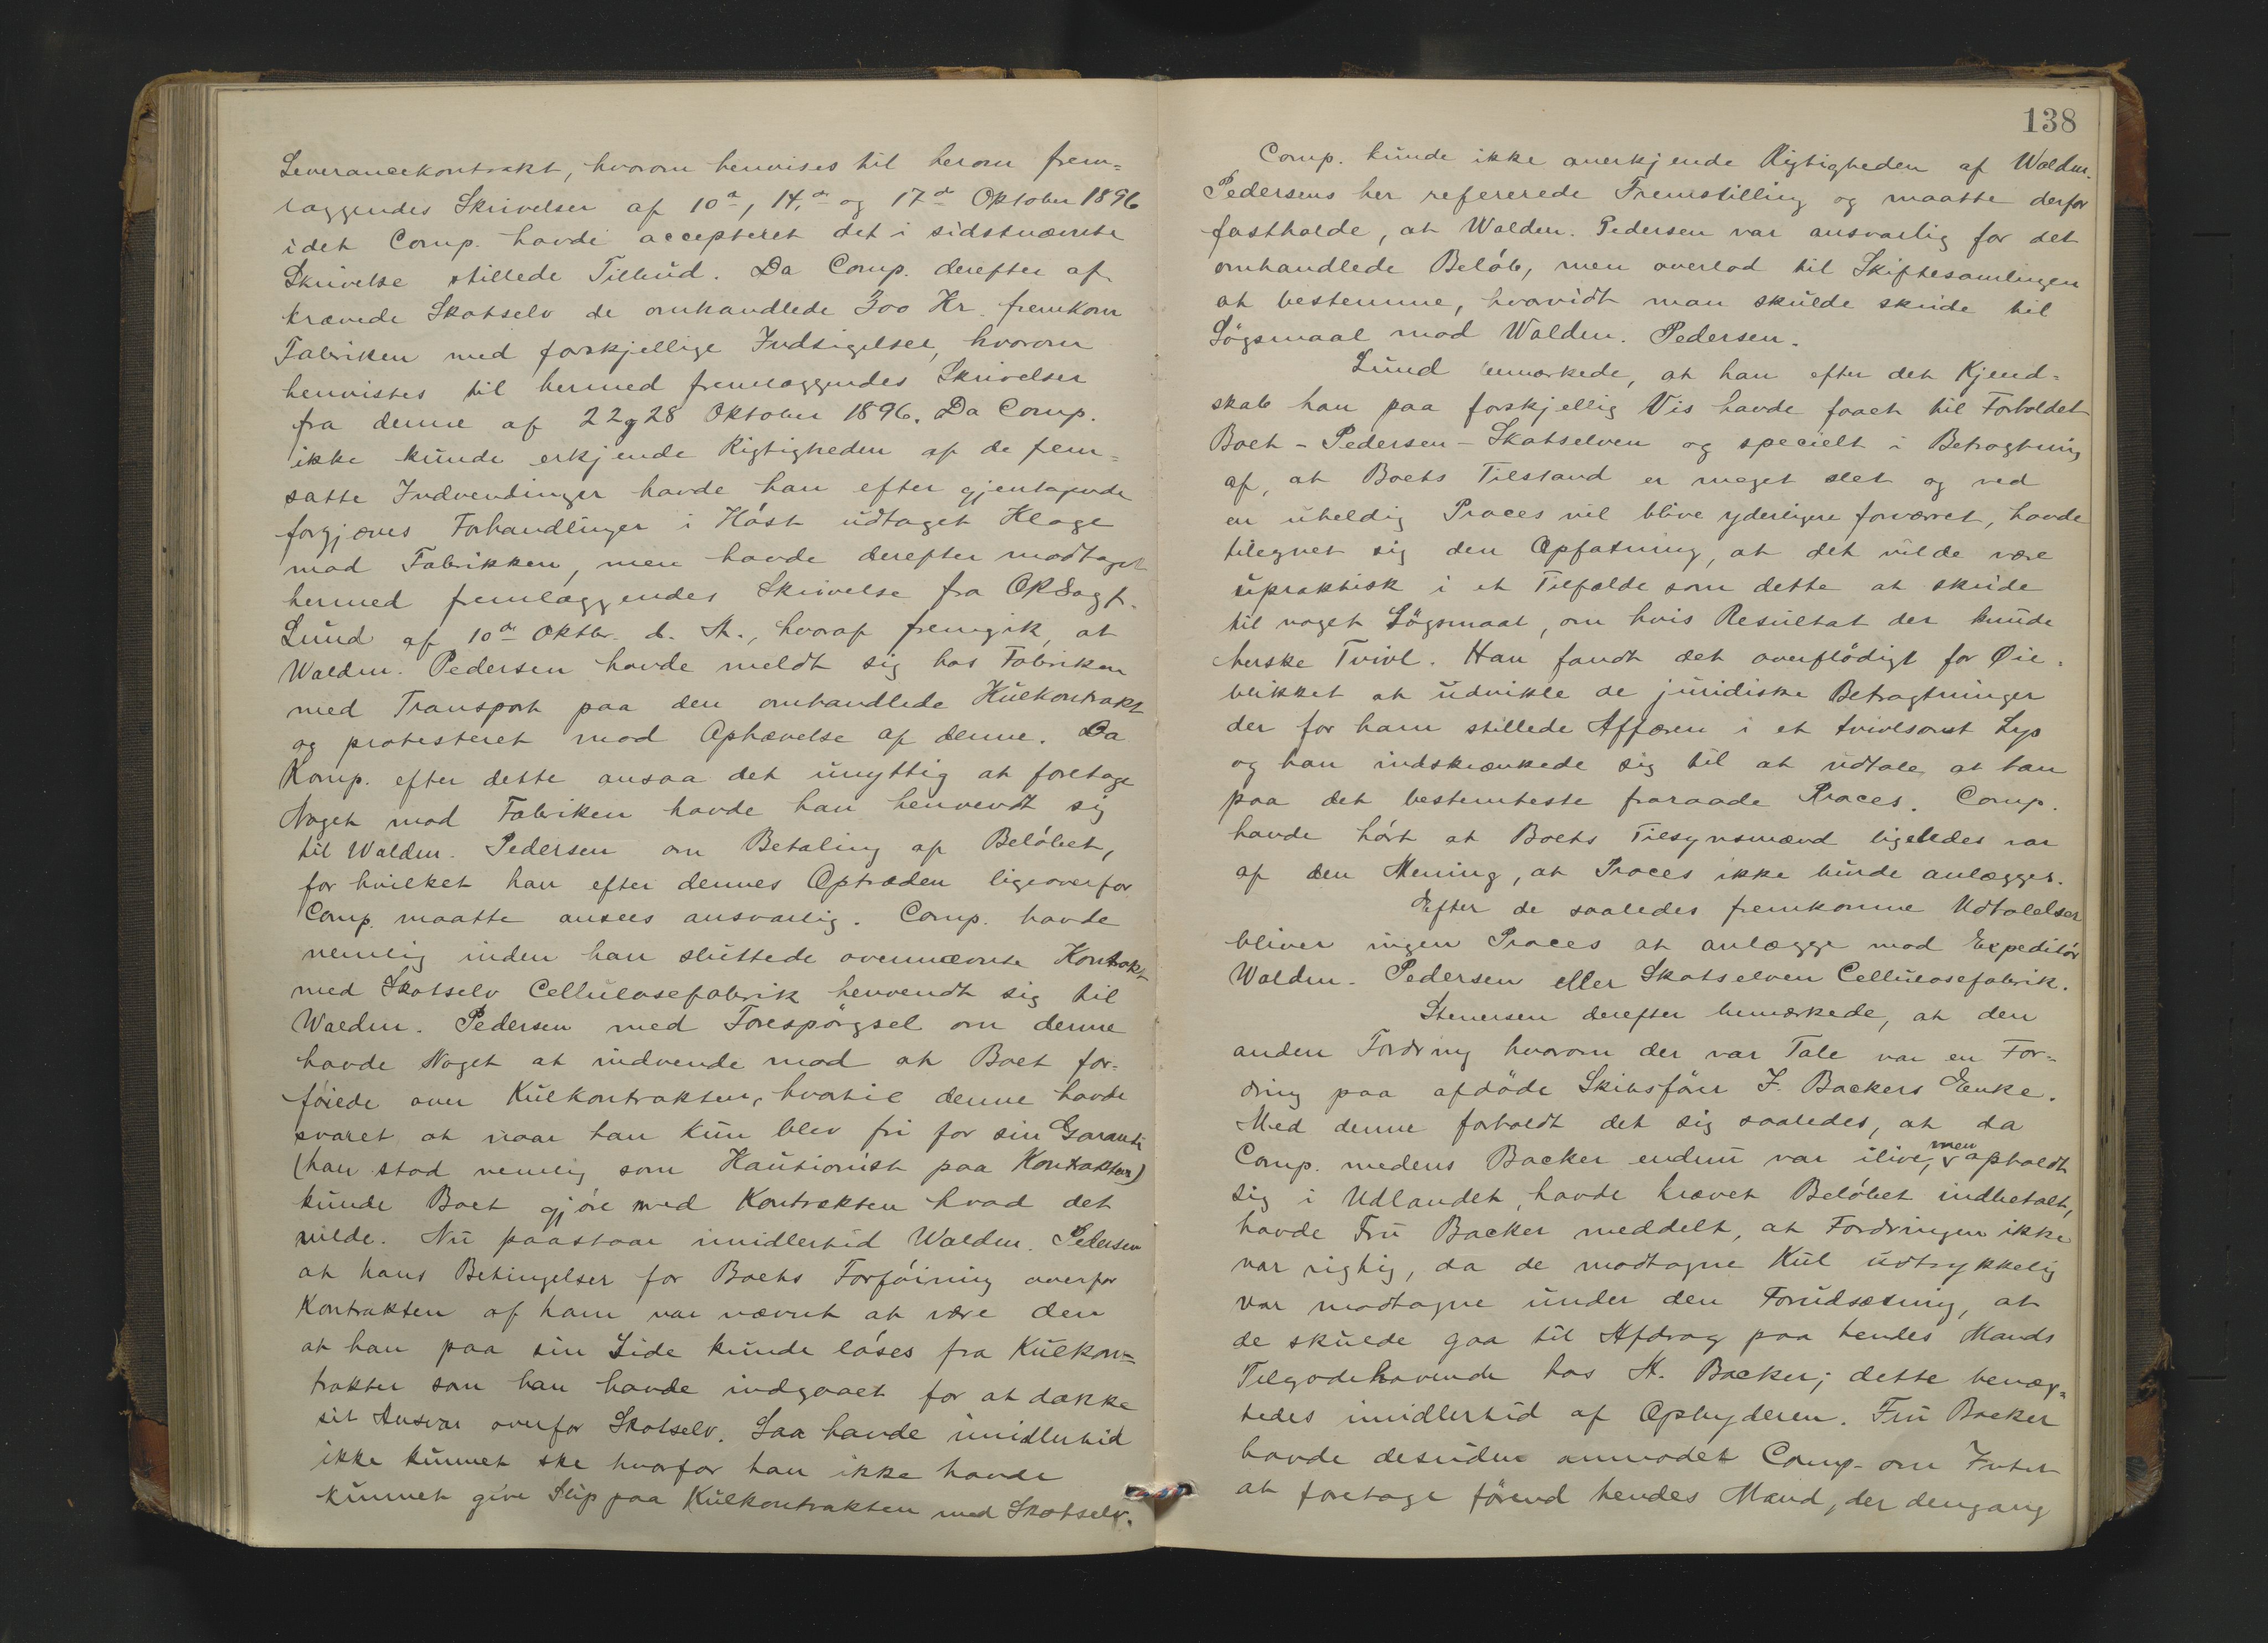 Leverancekontrakt, hvorom henvises til herom frem=
læggendes Skrivelser af 10de, 14.de og 17de Oktober 1896
idet Comp. havde accepteret det i sidstnævnte
Skrivelse stillede Tilbud. Da Comp. derefter af
krævede Skotselv de omhandlede 300 Kr. fremkom
Fabriken med forskjellige Indsigelser, hvorom
henvistes til hermed fremlæggendes Skrivelser
fra denne af 22 og 28 Oktober 1896. Da Comp.
ikke kunde erkjende Rigtigheden af de frem=
satte Indvendinger havde han efter gjentagende
forgjæves Forhandlinger i Høst udtaget Klage
mod Fabrikken, men havde derefter modtaget
hermed fremlæggendes Skrivelse fra ORSagf.
Lund af 10de Oktbr. d. A., hvoraf fremgik, at
Waldm. Pedersen havde meldt sig hos Fabriken
med Transport paa den omhandlede Kulkontrakt
og protesteret mod Ophævelse af denne. Da
Komp. efter dette ansaa det unyttig at foretage
Noget mod Fabriken havde han henvendt sig
til Waldm. Pedersen om Betaling af Beløbet,
for hvilket han efter dennes Optræden ligeoverfor
Comp. maatte ansees ansvarlig. Comp. havde
nemlig inden han sluttede ovennævnte Kontrakt
med Skotselv Cellulosefabrik henvendt sig til
Waldm. Pedersen med Forespørgsel om denne
havde Noget at indvende mod at Boet for=
føiede over Kulkontrakten, hvortil denne havde
svaret at naar han kun blev fri for sin Garanti
(han stod nemlig som Kautionist paa Kontrakten)
kunde Boet gjøre med Kontrakten hvad det
vilde. Nu paastaar imidlertid Waldm. Pedersen
at hans Betingelser for Boets Forføining overfor
Kontrakten af ham var nævnt at være den
at han paa sin Side kunde løses fra Kulkon=
trakter som han havde indgaaet for at dække
sit Ansvar overfor Skotselv. Saa havde imidlertid
ikke kunnet ske hvorfor han ikke havde
kunnet give Slip paa Kulkontrakten med Skotselv.
138
Comp. kunde ikke anerkjende Rigtigheden af Waldm.
Pedersens her refererede Fremstilling og maatte derfor
fastholde, at Waldm. Pedersen var ansvarlig for det
omhandlede Beløb, men overlod til Skiftesamlingen
at bestemme, hvorvidt man skulde skride til
Søgsmaal mod Waldm. Pedersen.
Lund bemærkede, at han efter det Kjend=
skab han paa forskjellig Vis havde faaet til Forholdet
Boet - Pedersen - Skotselven og specielt i Betragtning
af, at Boets Tilstand er meget slet og ved
en uheldig Proces vil blive yderligere forværret, havde
tilegnet sig den Opfatning, at det vilde være
upraktisk i et Tilfælde som dette at skride
til noget Søgsmaal, om hvis Resultat der kunde
herske Tvivl. Han fandt det overflødigt for Øie=
blikket at udvikle de juridiske Betragtninger
der for ham stillede Affæren i et tvivlsomt Lys
og han indskrænkede sig til at udtale, at han
paa det bestemteste fraraade Proces. Comp.
havde hørt at Boets Tilsynsmænd ligeledes var
af den Mening, at Proces ikke burde anlægges.
Efter de saaledes fremkomne Udtalelser
bliver ingen Proces at anlægge mod Expeditør
Waldm. Pedersen eller Skotselven Cellulosefabrik.
Stenersen derefter bemærkede, at den
anden Fordring hvorom der var Tale var en For=
dring paa afdøde Skibsfører J. Backers Enke.
Med denne forholdt det sig saaledes, at da
Comp. medens Backer endnu var ilive, men opholdt
sig i Udlandet, havde krævet Beløbet indbetalt,
havde Fru Backer meddelt, at Fordringen ikke
var rigtig, da de modtagne Kul udtrykkelig
var modtagne under den Forudsætning, at
de skulde gaa til Afdrag paa hendes Mands
Tilgodehavende hos H. Backer; dette benæg=
tedes imidlertid af Opbyderen. Fru Backer
havde desuden anmodet Comp. om Intet
at foretage førend hendes Mand, der dengang